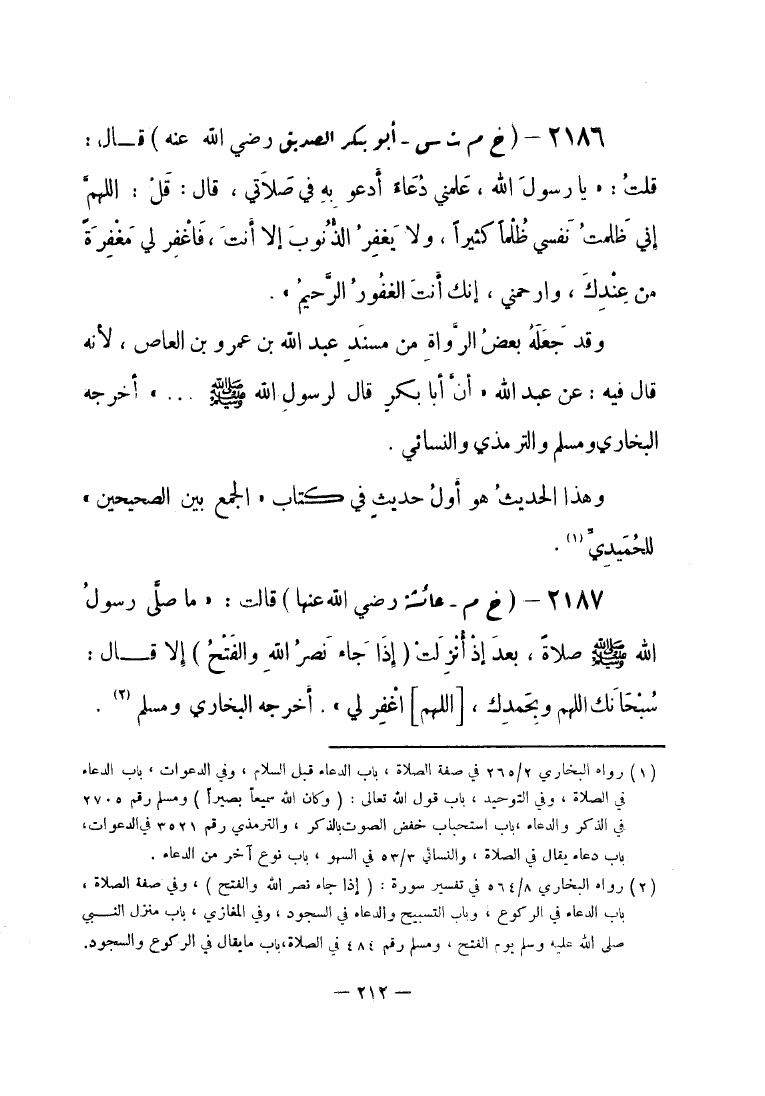 ٢١٨٦ – ( خ م ت س - أبو بكر الصديق رضي الله عنه ) قـــال :
قلتُ : « يا رسولَ الله ، عَلمني دُعَاءً أدعو بِهِ في صَلَاتي ، قال : قُلْ : اللهمَّ
إني ظلمتُ نَفسي ظُلْماً كثيراً ، ولا يَغفِرُ الذُّنُوبَ إلا أنتَ ، فَاغْفِر لي مَغْفِرَةً
من عِنْدِكَ ، وارحمني ، إنك أنتَ الغفُورُ الرَّحيمُ » .
وقد جَعَلَهُ بعضُ الرُّواةِ من مسنَدِ عبد الله بن عمرو بن العاص ، لأنه
قال فيه : عن عبد الله « أنَّ أبا بكرٍ قال لرسولِ الله ﷺ ... » أخرجه
البخاري ومسلم والترمذي والنسائي .
وهذا الحديثُ هو أولُ حديثٍ في كتاب « الجمع بين الصحيحين »
للحُمَيدِيِّ (١) .
٢١٨٧ – ( خ م - عائشة رضي الله عنها ) قالت : « ما صلَّى رسولُ
الله ﷺ صلاةً ، بعدَ إذْ أُنْزِلَتْ ( إذَا جَاءَ نَصرُ اللهِ والفَتْحُ ) إلا قـــال :
سُبْحَانَك اللهم وبِحَمدِكَ ، [اللهم] اغْفِر لي » . أخرجه البخاري ومسلم (٢) .
(١) رواه البخاري ٢٦٥/٢ في صفة الصلاة ، باب الدعاء قبل السلام ، وفي الدعوات ، باب الدعاء
في الصلاة ، وفي التوحيد ، باب قول الله تعالى : ( وكان الله سميعاً بصيراً ) ومسلم رقم ٢٧٠٥
في الذكر والدعاء ، باب استحباب خفض الصوت بالذكر ، والترمذي رقم ٣٥٢١ في الدعوات،
باب دعاء يقال في الصلاة ، والنسائي ٥٣/٣ في السهو ، باب نوع آخر من الدعاء .
(٢) رواه البخاري ٥٦٤/٨ في تفسير سورة : ( إذا جاء نصر الله والفتح ) ، وفي صفة الصلاة ،
باب الدعاء في الركوع ، وباب التسبيح والدعاء في السجود ، وفي المغازي ، باب منزل النـــبي
صلى الله عليه وسلم يوم الفتح ، ومسلم رقم ٤٨٤ في الصلاة،باب مايقال في الركوع والسجود.
– ٢١٢ –